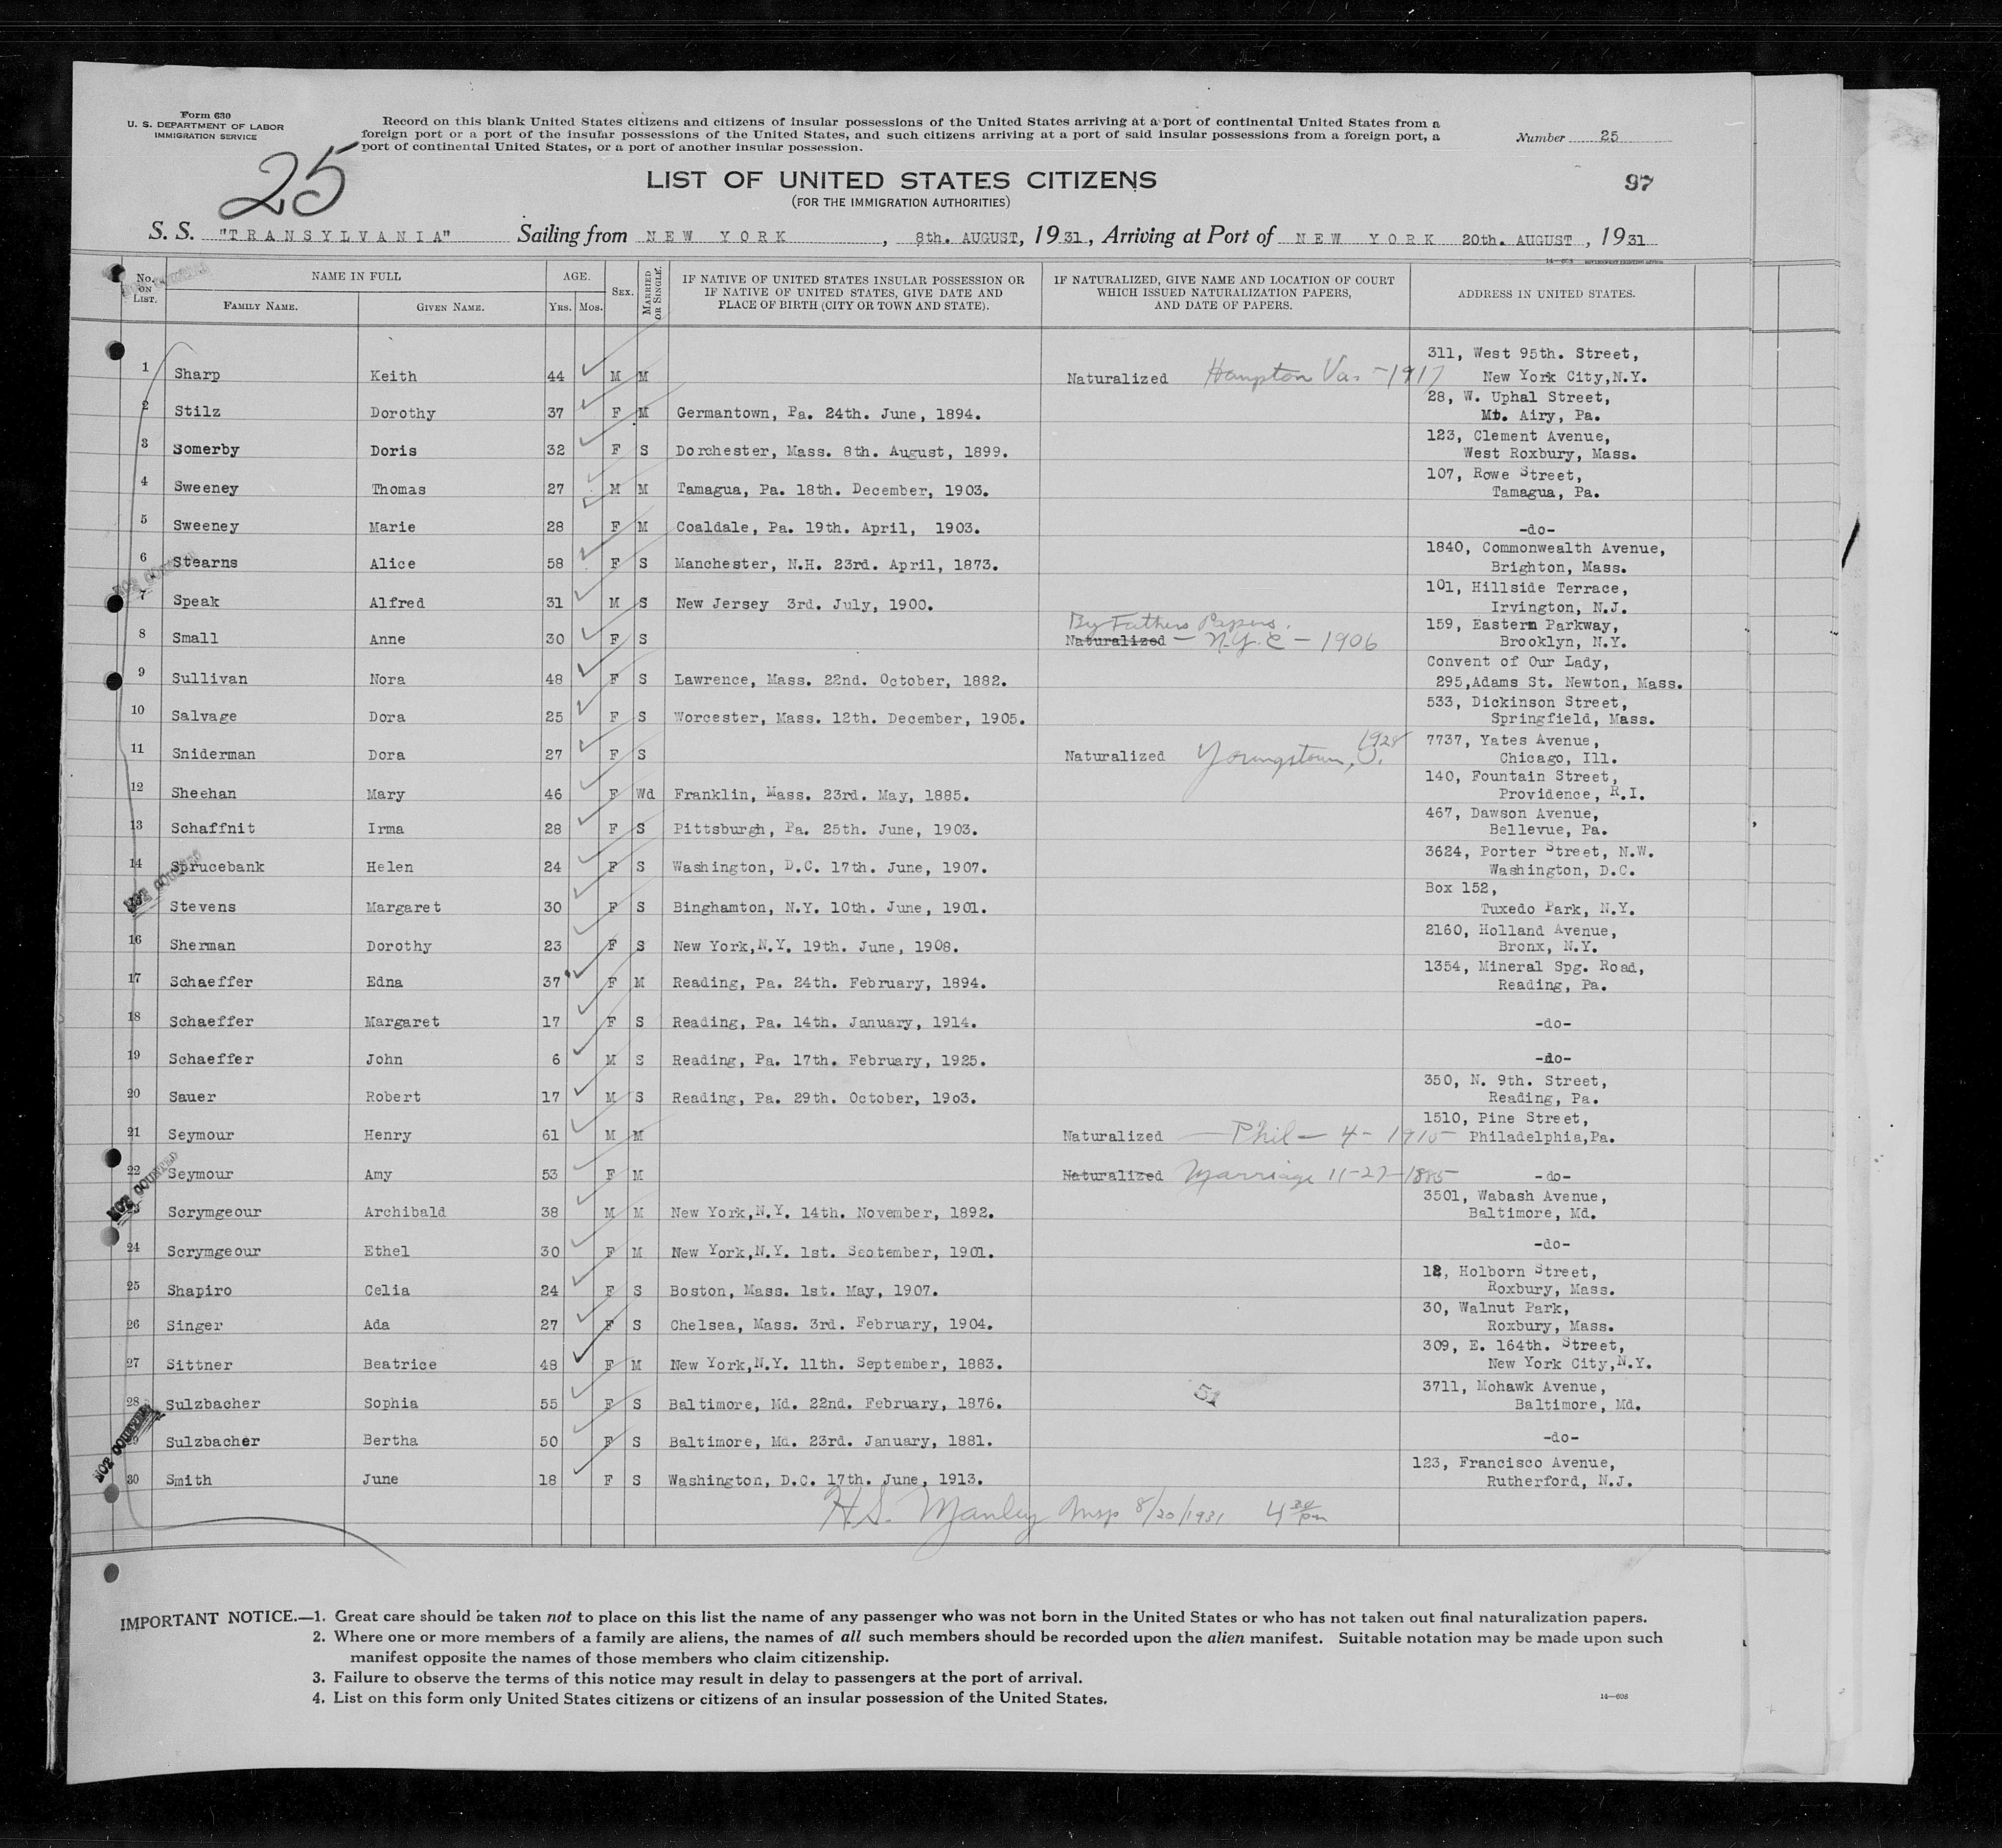 Form 630
U. S. DEPARTMENT OF LABOR
IMMIGRATION SERVICE
Record on this blank United States citizens and citizens of insular possessions of the United States arriving at a port of continental United States from a
foreign port or a port of the insular possessions of the United States, and such citizens arriving at a port of said insular possessions from a foreign port, a
port of continental United States, or a port of another insular possession.
Number 25
25
LIST OF UNITED STATES CITIZENS
(FOR THE IMMIGRATION AUTHORITIES)
97
S. S. "TRANSYLVANIA" Sailing from NEW YORK, 8th. AUGUST, 1931, Arriving at Port of NEW YORK 20th. AUGUST, 1931
No. ON LIST. NAME IN FULL AGE. SEX. MARRIED OR SINGLE. IF NATIVE OF UNITED STATES INSULAR POSSESSION OR IF NATIVE OF UNITED STATES, GIVE DATE AND PLACE OF BIRTH (CITY OR TOWN AND STATE). IF NATURALIZED, GIVE NAME AND LOCATION OF COURT WHICH ISSUED NATURALIZATION PAPERS, AND DATE OF PAPERS. ADDRESS IN UNITED STATES.
FAMILY NAME. GIVEN NAME. YRS. MOS.
311, West 95th. Street,
1 Sharp Keith 44 M M Naturalized Hampton Va. - 1917 New York City,N.Y.
28, W. Uphal Street,
2 Stilz Dorothy 37 F M Germantown, Pa. 24th. June, 1894. Mt. Airy, Pa.
123, Clement Avenue,
3 Somerby Doris 32 F S Dorchester, Mass. 8th. August, 1899. West Roxbury, Mass.
107, Rowe Street,
4 Sweeney Thomas 27 M M Tamagua, Pa. 18th. December, 1903. Tamagua, Pa.
5 Sweeney Marie 28 F M Coaldale, Pa. 19th. April, 1903. -do-
1840, Commonwealth Avenue,
6 Stearns Alice 58 F S Manchester, N.H. 23rd. April, 1873. Brighton, Mass.
101, Hillside Terrace,
7 Speak Alfred 31 M S New Jersey 3rd. July, 1900. Irvington, N.J.
By Fathers Papers. 159, Eastern Parkway,
8 Small Anne 30 F S Naturalized - N.Y.C - 1906 Brooklyn, N.Y.
Convent of Our Lady,
9 Sullivan Nora 48 F S Lawrence, Mass. 22nd. October, 1882. 295,Adams St. Newton, Mass.
533, Dickinson Street,
10 Salvage Dora 25 F S Worcester, Mass. 12th. December, 1905. Springfield, Mass.
1928 7737, Yates Avenue,
11 Sniderman Dora 27 F S Naturalized Youngstown, O. Chicago, Ill.
140, Fountain Street,
12 Sheehan Mary 46 F Wd Franklin, Mass. 23rd. May, 1885. Providence, R.I.
467, Dawson Avenue,
13 Schaffnit Irma 28 F S Pittsburgh, Pa. 25th. June, 1903. Bellevue, Pa.
3624, Porter Street, N.W.
14 Sprucebank Helen 24 F S Washington, D.C. 17th. June, 1907. Washington, D.C.
NOT COUNTED
Box 152,
Stevens Margaret 30 F S Binghamton, N.Y. 10th. June, 1901. Tuxedo Park, N.Y.
2160, Holland Avenue,
16 Sherman Dorothy 23 F S New York,N.Y. 19th. June, 1908. Bronx, N.Y.
1354, Mineral Spg. Road,
17 Schaeffer Edna 37 F M Reading, Pa. 24th. February, 1894. Reading, Pa.
18 Schaeffer Margaret 17 F S Reading, Pa. 14th. January, 1914. -do-
19 Schaeffer John 6 M S Reading, Pa. 17th. February, 1925. -do-
350, N. 9th. Street,
20 Sauer Robert 17 M S Reading, Pa. 29th. October, 19o3. Reading, Pa.
1510, Pine Street,
21 Seymour Henry 61 M M Naturalized - Phil - 4 - 1915 Philadelphia,Pa.
22 Seymour Amy 53 F M Naturalized Marriage 11-27-1885 -do-
NOT COUNTED
3501, Wabash Avenue,
Scrymgeour Archibald 38 M M New York,N.Y. 14th. November, 1892. Baltimore, Md.
24 Scrymgeour Ethel 30 F M New York,N.Y. 1st. Seotember, 1901. -do-
12, Holborn Street,
25 Shapiro Celia 24 F S Boston, Mass. 1st. May, 1907. Roxbury, Mass.
30, Walnut Park,
26 Singer Ada 27 F S Chelsea, Mass. 3rd. February, 1904. Roxbury, Mass.
309, E. 164th. Street,
27 Sittner Beatrice 48 F M New York,N.Y. 11th. September, 1883. New York City,N.Y.
51 3711, Mohawk Avenue,
28 Sulzbacher Sophia 55 F S Baltimore, Md. 22nd. February, 1876. Baltimore, Md.
NOT COUNTED
29 Sulzbacher Bertha 50 F S Baltimore, Md. 23rd. January, 1881. -do-
123, Francisco Avenue,
30 Smith June 18 F S Washington, D.C. 17th. June, 1913. Rutherford, N.J.
H.S. Manley Insp 8/20/1931 4 30 pm
IMPORTANT NOTICE.—1. Great care should be taken not to place on this list the name of any passenger who was not born in the United States or who has not taken out final naturalization papers.
2. Where one or more members of a family are aliens, the names of all such members should be recorded upon the alien manifest. Suitable notation may be made upon such
manifest opposite the names of those members who claim citizenship.
3. Failure to observe the terms of this notice may result in delay to passengers at the port of arrival.
4. List on this form only United States citizens or citizens of an insular possession of the United States.
14—608